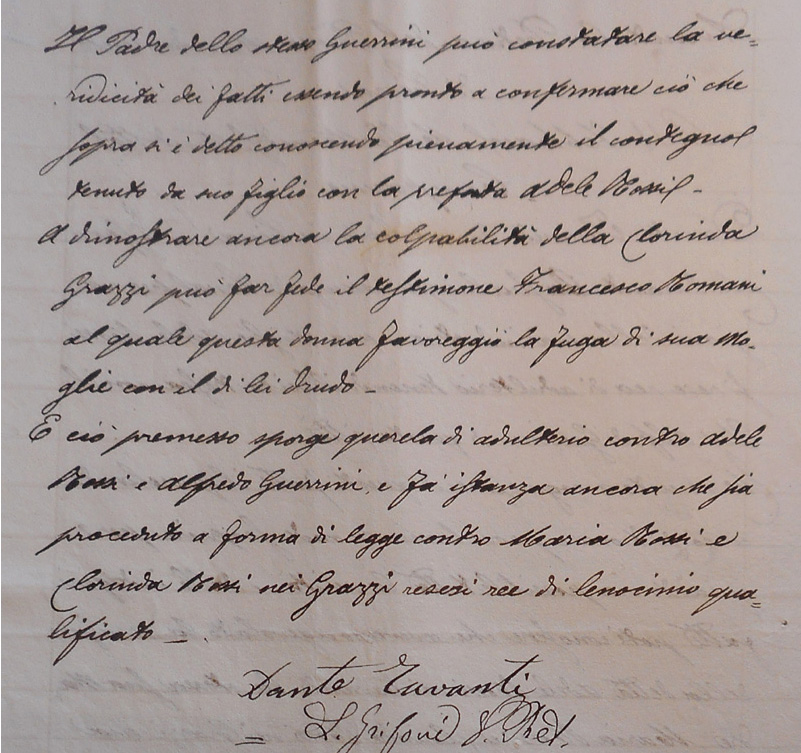 Il Padre dello stesso Guerrini può constatare la ve=
ridicità dei fatti essendo pronto a confermare ciò che
sopra si è detto conoscendo pienamente il contegno
tenuto da suo figlio con la prefata Adele Rossi -
A dimostrare ancora la colpabilità della Clorinda
Grazzi può far fede il testimone Francesco Romani
al quale questa donna favoreggiò la fuga di sua mo-
glie con il di lei drudo -
E ciò premesso sporge querela di adulterio contro Adele
Rossi e Alfredo Guerrini, e fa istanza ancora che sia
proceduto a forma di legge contro Maria Rossi e
Clorinda Rossi nei Grazzi resesi ree di lenocinio qua=
lificato -.
Dante Tavanti
= L. Grifoni